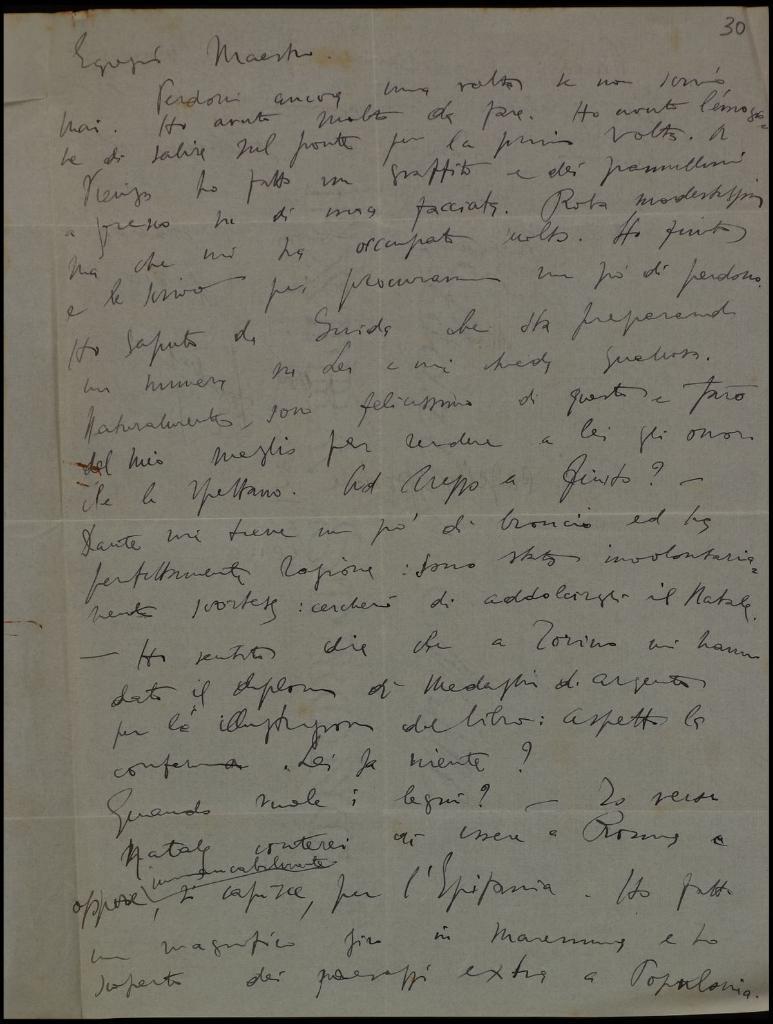 30
Egregio Maestro.
Perdoni ancora una volta se non scrivo
mai. Ho avuto molto da fare. Ho avuto l'emozio=
ne di salire sul ponte per la prima volta. A
ho fatto un graffito e dei pannelloni
a fresco su di una facciata. Roba modestissima
ma che mi ha occupato molto. Ho finito
e le scrivo per procurarmi un pò di perdono.
Ho saputo da Guido che sta preparando
un numero su Lei e mi chiede qualcosa.
Naturalmente sono felicissimo di questo e farò
del mio meglio per rendere a lei gli onori
che le spettano. Ad Arezzo a finito? —
Dante mi tiene un po' di broncio ed ha
perfettamente ragione: sono stato involontaria=
mente scortese: cercherò di addolcirgli il Natale.
— Ho sentito dire che a Torino mi hanno
dato il diploma di Medaglia d'argento
per la illustrazione del libro: aspetto la
conferma. Lei sa niente?
Quando vuole i legni? — Io verso
Natale conterei di essere a Roma e
immancabilmente
oppure, si capisce, per l'Epifania. Ho fatto
un magnifico giro in Maremma e ho
scoperto dei paesaggi extra a Populonia.